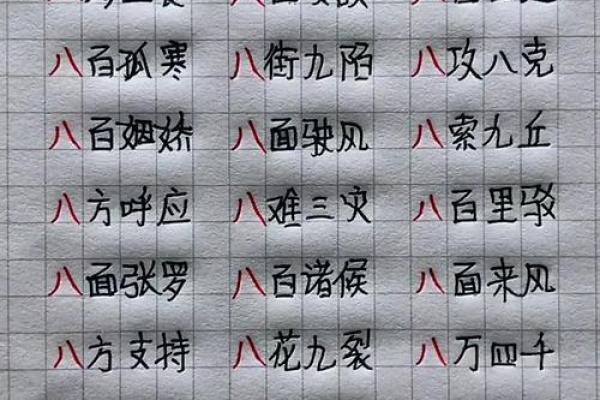 八百孤寒 八街九陌 八攻八克
八百姻娇 八面驶风 八索九丘
八方呼应 八难三灾 八百里驳
八面张罗 八百诸候 八面来风
八方支持 八花九裂 八万四千